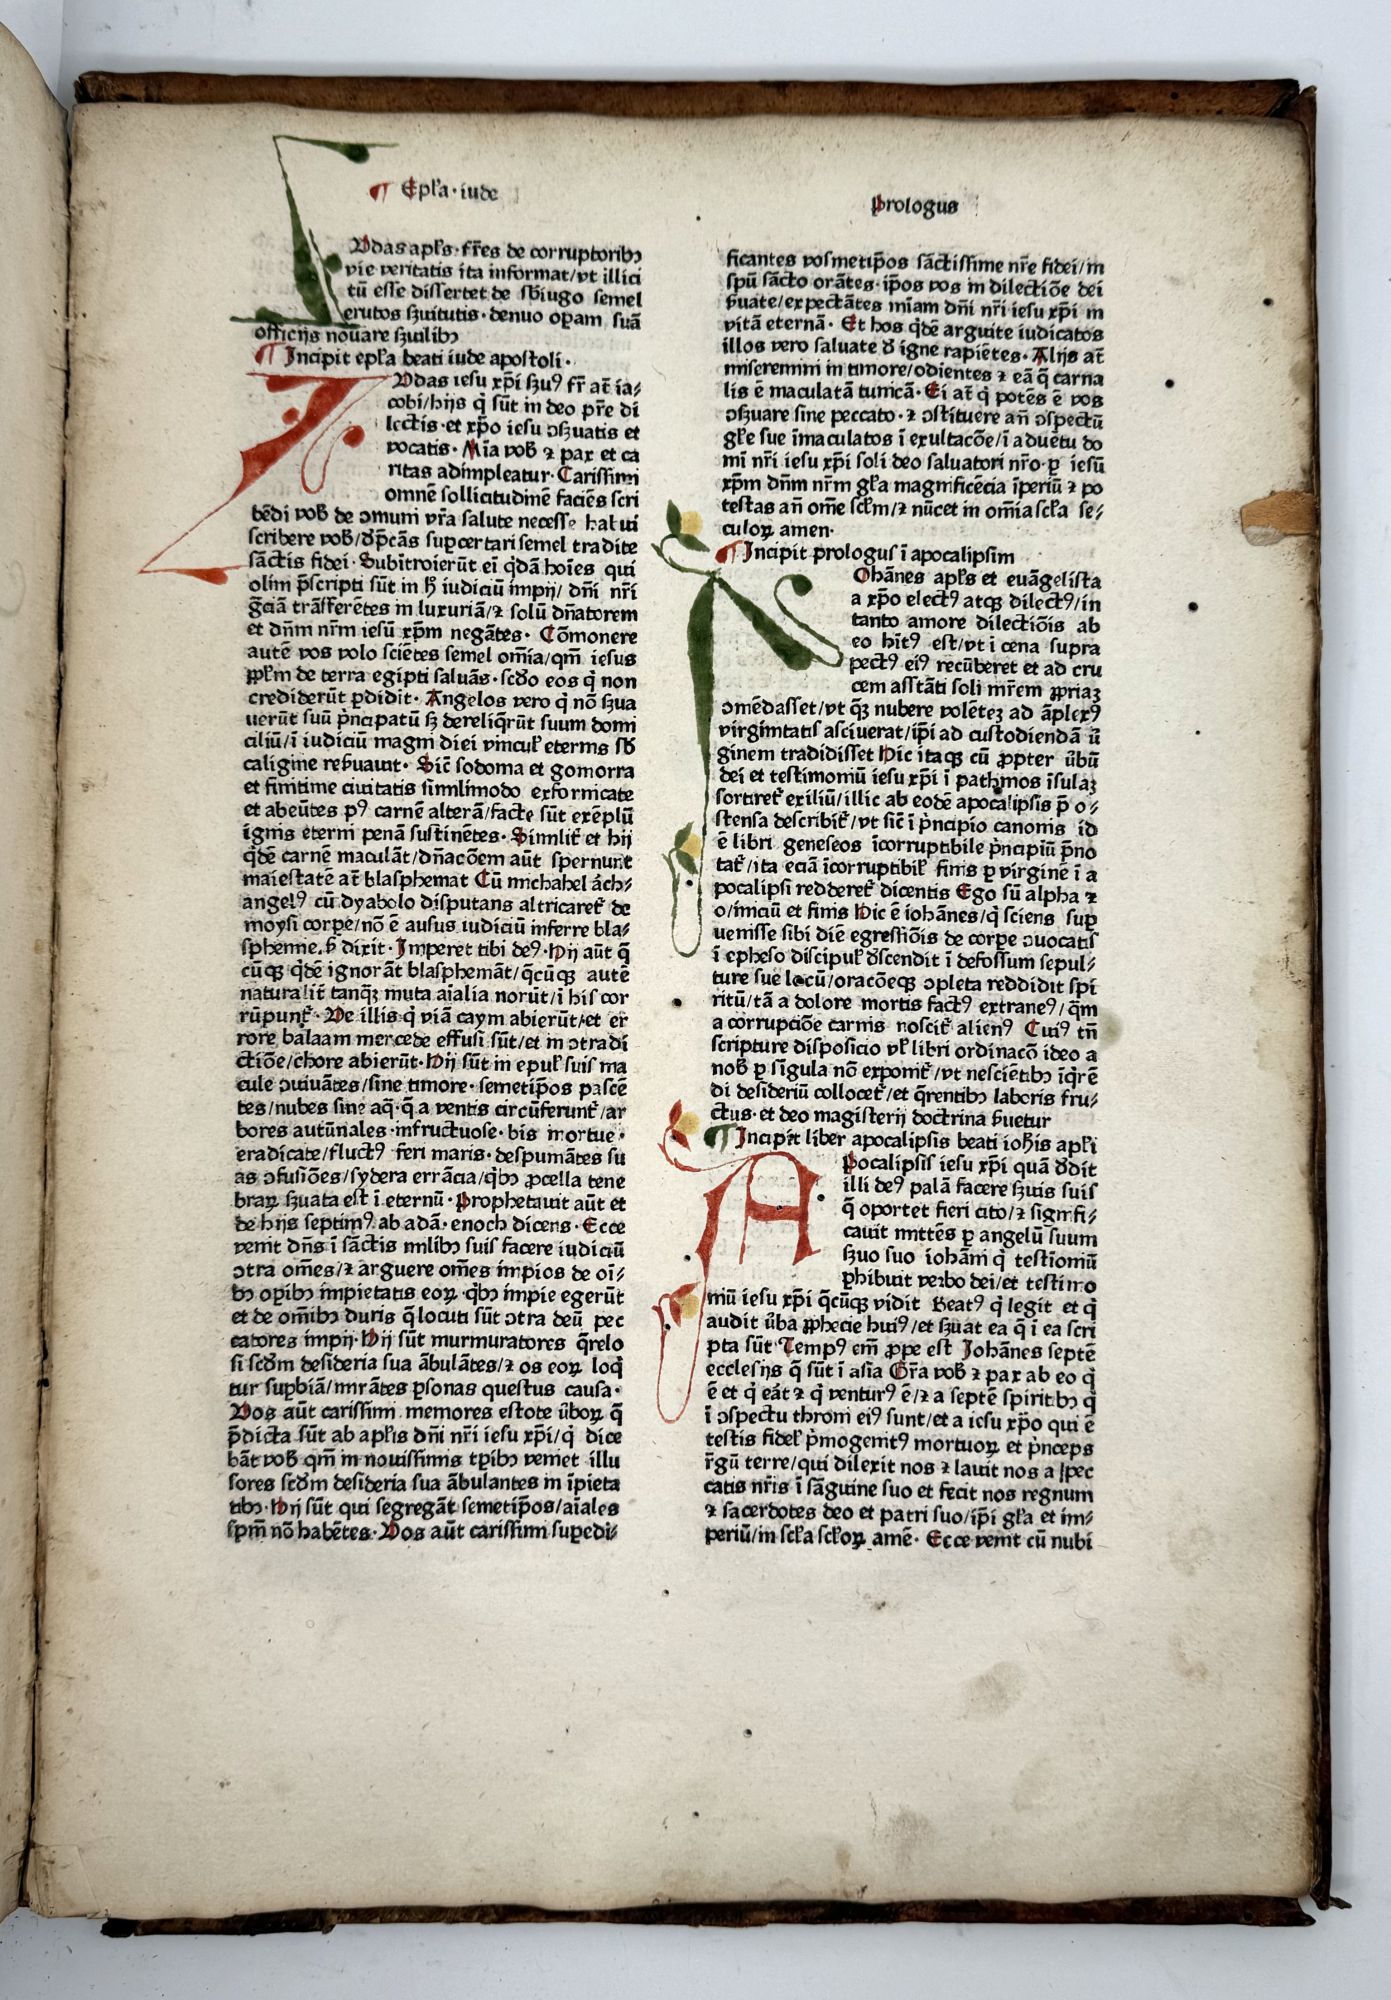 ¶ Epl̄a · iude
Prologus
IVdas apl̄s · fr̄es de corruptoribꝫ
vie veritatis ita informat/vt illici
tū esse dissertet de s̄biugo semel
erutos s̄uitutis · denuo oꝑam suā
officijs nouare s̄uilibꝫ
¶ Incipit epl̄a beati iude apostoli ·
IVdas iesu xp̄i s̄uꝰ fr̄ at̄ ia⸗
cobi/hijs q̇ sūt in deo pr̄e di
lectis · et xp̄o iesu ꝯs̄uatis et
vocatis · Mīa vob̄ ꝛ pax et ca
ritas adimpleatur · Carissimi
omnē sollicitudinē faciēs scri
bēdi vob̄ de ꝯmuni vr̄a salute necesse habui
scribere vob̄/dp̄cās suꝑcertari semel tradite
sāctis fidei · Subitroierūt ei q̇dā hoīes qui
olim p̄scripti sūt in h̄ iudiciū impij/ dn̄i nr̄i
gr̄ciā trāsferētes in luxuriā/ꝛ solū dn̄atorem
et dn̄m nr̄m iesū xp̄m negātes · Cōmonere
autē vos volo sciētes semel om̄ia/qm̄ iesus
ppl̄m de terra egipti saluās · scdo eos q̇ non
crediderūt ꝑdidit · Angelos vero q̇ nō s̄ua
uerūt suū pͥncipatū sꝫ dereliq̄rūt suum domi
ciliū/ī iudiciū magni diei vincul̄ eternis sb̄
caligine res̄uauit · Sic̄ sodoma et gomorra
et finitime ciuitatis simili modo exfornicate
et abeūtes pꝰ carnē alterā/facte sūt exēplū
ignis eterni penā sustinētes · Similit̄ et hij
q̇dē carnē maculāt/dn̄acōem aūt spernunt
maiestatē at̄ blasphemāt Cū michahel ārch⸗
angelꝰ cū dyabolo disputans altricaret̄ de
moysi corꝑe/nō ē ausus iudiciū inferre bla⸗
sphemie · s̄ dixit · Imperet tibi deꝰ · Hij aūt q̄
cūqꝫ q̇dē ignorāt blasphemāt/q̄cūqꝫ autē
naturalit̄ tanqꝫ muta aīalia norūt/ī his cor
rūpunt̄ · Ve illis q̇ viā caym abierūt/et er
rore balaam mercede effusi sūt/et in ꝯtradi
ctiōe/chore abierūt · Hij sūt in epul̄ suis ma
cule ꝯuiuātes/sine timore · semetip̄os pascē
tes/nubes sine aq̄ · q̄ a ventis circūferunt̄/ar
bores autūnales · infructuose · bis mortue ·
eradicate/fluctꝰ feri maris · despumātes su
as ꝯfusiōes/sydera errācia/q̇bꝫ ꝓcella tene
braꝝ s̄uata est ī eternū · Prophetauit aūt et
de hijs septimꝰ ab adā · enoch dicens · Ecce
venit dn̄s ī sāctis milibꝫ suis facere iudiciū
ꝯtra om̄es/ꝛ arguere om̄es impios de oī⸗
bꝫ oꝑibꝫ impietatis eoꝝ · q̇bꝫ impie egerūt
et de om̄ibꝫ duris q̄ locuti sūt ꝯtra deū pec
catores impij · Hij sūt murmuratores q̄relo
si scdm desideria sua ābulātes/ꝛ os eoꝝ loq̇
tur suꝑbiā/mirātes ꝑsonas questus causa ·
Vos aūt carissimi memores estote v̄boꝝ q̄
p̄dicta sūt ab apl̄is dn̄i nr̄i iesu xp̄i/q̇ dice
bāt vob̄ qm̄ in nouissimis tꝑibꝫ venient illu
sores scdm desideria sua ābulantes in īpieta
tibꝫ · Hij sūt qui segregāt semetip̄os/aīales
spm̄ nō habētes · Vos aūt carissimi suꝑedi⸗
ficantes vosmetip̄os sāctissime nr̄e fidei/in
spū sācto orātes · ip̄os vos in dilectiōe dei
s̄uate/expectātes mīam dn̄i nr̄i iesu xp̄i in
vitā eternā · Et hos q̇dē arguite iudicatos
illos vero saluate d̄ igne rapiētes · Alijs at̄
miseremini in timore/odientes ꝛ eā q̄ carna
lis ē maculatā tunicā · Ei at̄ q̇ potēs ē vos
ꝯs̄uare sine peccato · ꝛ ꝯstituere an̄ ꝯspectū
gl̄e sue īmaculatos ī exultacōe/ī aduētu do
mī nr̄i iesu xp̄i soli deo saluatori nr̄o · ꝑ iesū
xp̄m dn̄m nr̄m gl̄a magnificēcia īperiū ꝛ po
testas an̄ om̄e scl̄m/ꝛ nūc et in om̄ia scl̄a se⸗
culoꝝ amen ·
¶ Incipit prologus ī apocalipsim
IOhānes apl̄s et euāgelista
a xp̄o electꝰ atqꝫ dilectꝰ/in
tanto amore dilectiōis ab
eo hitꝰ est/vt ī cena supra
pectꝰ eiꝰ recūberet et ad cru
cem asstāti soli mr̄em ꝓpriaꝫ
ꝯmēdasset/vt qꝫ nubere volēteꝫ ad āplexꝰ
virginitatis asciuerat/ip̄i ad custodiendā v̄
ginem tradidisset Hic itaqꝫ cū ꝓpter v̄bū
dei et testimoniū iesu xp̄i ī pathmos īsulaꝫ
sortiret̄ exiliū/illic ab eodē apocalipsis p̄ o⸗
stensa describit̄/vt sic̄ ī pͥncipio canonis id
ē libri geneseos īcorruptibile pͥncipiū p̄no
tat̄/ita eciā īcorruptibil̄ finis ꝑ virginē ī a
pocalipsi redderet̄ dicentis Ego sū alpha ꝛ
o/iniciū et finis Hic ē iohānes/q̇ sciens suꝑ
uenisse sibi diē egressiōis de corꝑe ꝯuocatis
ī epheso discipul̄ d̄scendit ī defossum sepul⸗
ture sue locū/oracōeqꝫ ꝯpleta reddidit spi
ritū/tā a dolore mortis factꝰ extraneꝰ/q̄m
a corrupciōe carnis noscit̄ alienꝰ Cuiꝰ tn̄
scripture disposicio vl̄ libri ordinacō ideo a
nob̄ ꝑ sīgula nō exponit̄/vt nescientibꝫ īq̇rē
di desideriū collocet̄/et q̄rentibꝫ laboris fru⸗
ctus · et deo magisterij doctrina s̄uetur
¶ Incipit liber apocalipsis beati ioh̄is apl̄i
APocalipsis iesu xp̄i quā d̄dit
illi deꝰ palā facere s̄uis suis
q̄ oportet fieri cito/ꝛ signifi⸗
cauit mittēs ꝑ angelū suum
s̄uo suo iohāni q̇ testīoniū
ꝑhibuit verbo dei/et testimo
niū iesu xp̄i q̄cūqꝫ vidit Beatꝰ q̇ legit et q̇
audit v̄ba ꝓphecie huiꝰ/et s̄uat ea q̄ ī ea scri
pta sūt Tempꝰ em̄ ꝓpe est Iohānes septē
ecclesijs q̄ sūt ī asia Gr̄a vob̄ ꝛ pax ab eo q̇
ē et q̇ erāt ꝛ q̇ venturꝰ ē/ꝛ a septē spiritibꝫ q̇
ī ꝯspectu throni eiꝰ sunt/et a iesu xp̄o qui ē
testis fidel̄ pͥmogenitꝰ mortuoꝝ et pͥnceps
r̄gū terre/qui dilexit nos ꝛ lauit nos a pec
catis nr̄is ī sāguine suo et fecit nos regnum
ꝛ sacerdotes deo et patri suo/ip̄i gl̄a et im⸗
periū/in scl̄a scl̄oꝝ amē · Ecce venit cū nubi